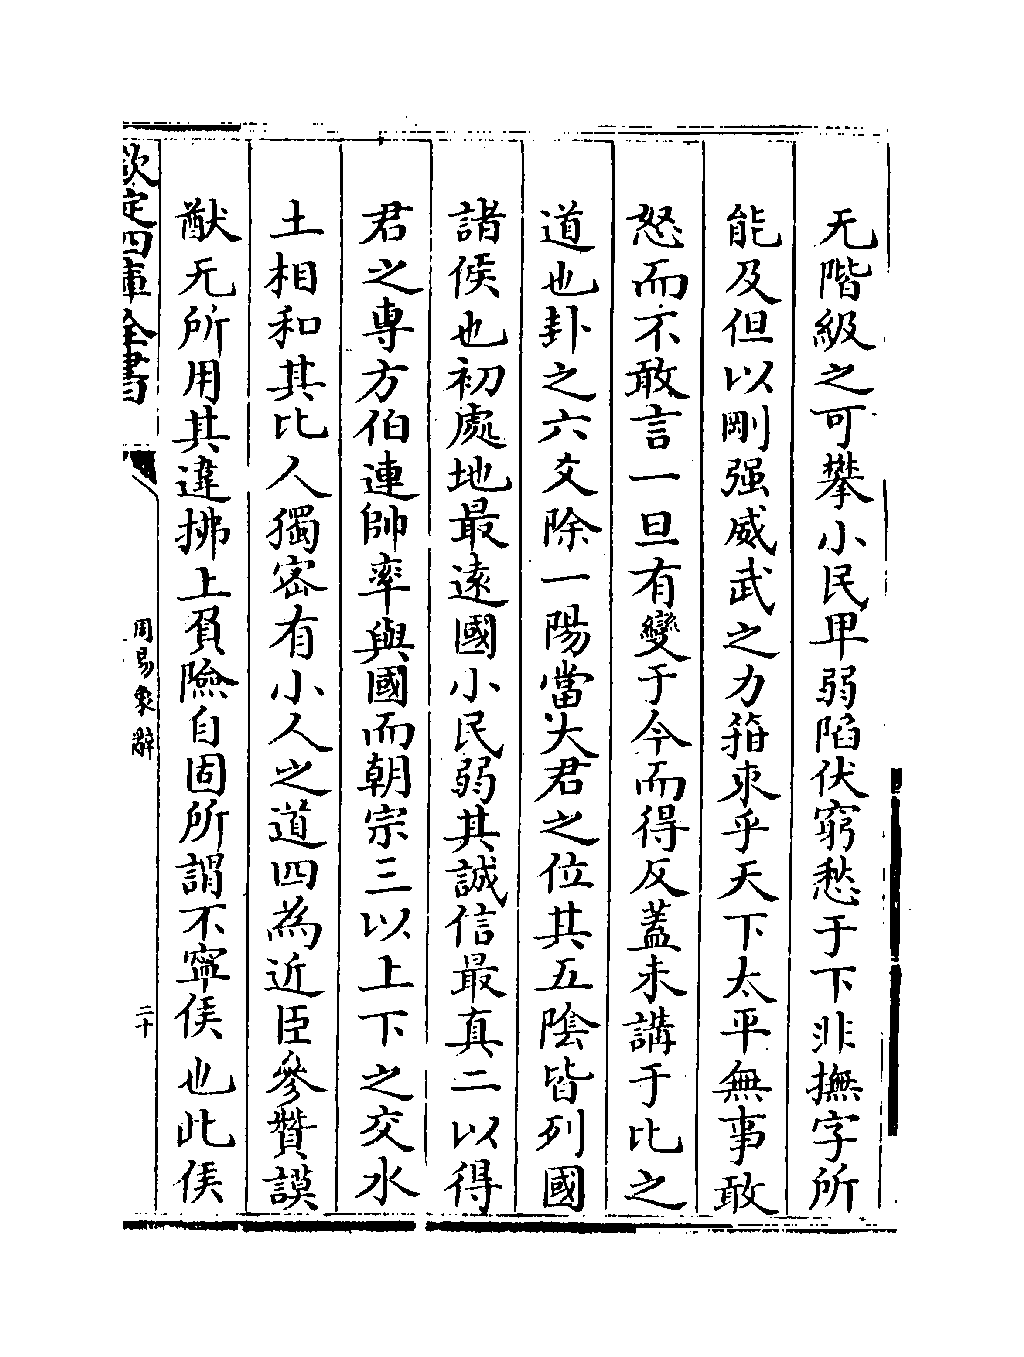 无階級之可攀小民卑弱陷伏窮愁于下非撫字所
能及但以剛强威武之力箝束乎天下太平無事敢
怒而不敢言一旦有變于今而得反蓋未講于比之
道也卦之六爻除一陽當大君之位其五陰皆列國
諸侯也初處地最遠國小民弱其誠信最真二以得
君之專方伯連帥率與國而朝宗三以上下之交水
土相和其比人獨密有小人之道四為近臣參贊謨
猷无所用其違拂上負險自固所謂不寧侯也此侯
欽定四庫全書
周易象辭
二十